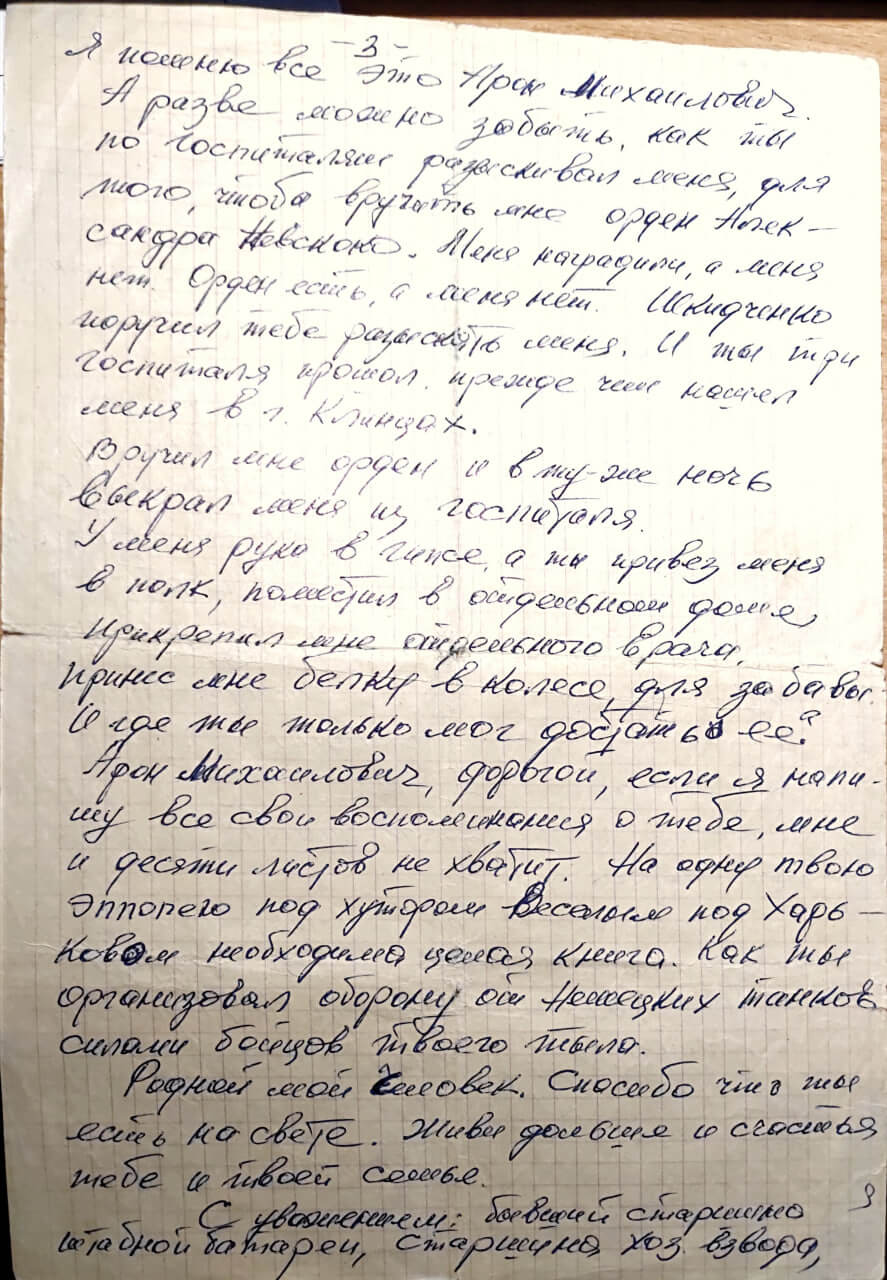 -3-
Я помню все это Арон Михайлович.
А разве можно забыть, как ты
по госпиталям разыскивал меня, для
того, чтобы вручить мне орден Алек-
сандра Невского. Меня наградили, а меня
нет. Орден есть, а меня нет. Шкидченко
поручил тебе разыскать меня. И ты три
госпиталя прошол, прежде чем нашел
меня в г. Клинцах.
Вручил мне орден и в ту-же ночь
выкрал меня из госпиталя.
У меня рука в гипсе, а ты привез меня
в полк, поместил в отдельном доме,
прикрепил мне отдельного врача.
Принес мне белку в колесе, для забавы.
И где ты только мог достать ее?
Арон Михайлович, дорогой, если я напи-
шу все свои воспоминания о тебе, мне
и десяти листов не хватит. На одну твою
эппопею под хутором Веселым под Харь-
ковом необходима целая книга. Как ты
организовал оборону от Немецких танков
силами бойцов твоего тыла.
Родной мой человек. Спасибо что ты
есть на свете. Живи дольше и счастья
тебе и твоей семье.
С уважением: бывший старшина
штабной батареи, старшина хоз. взвода,